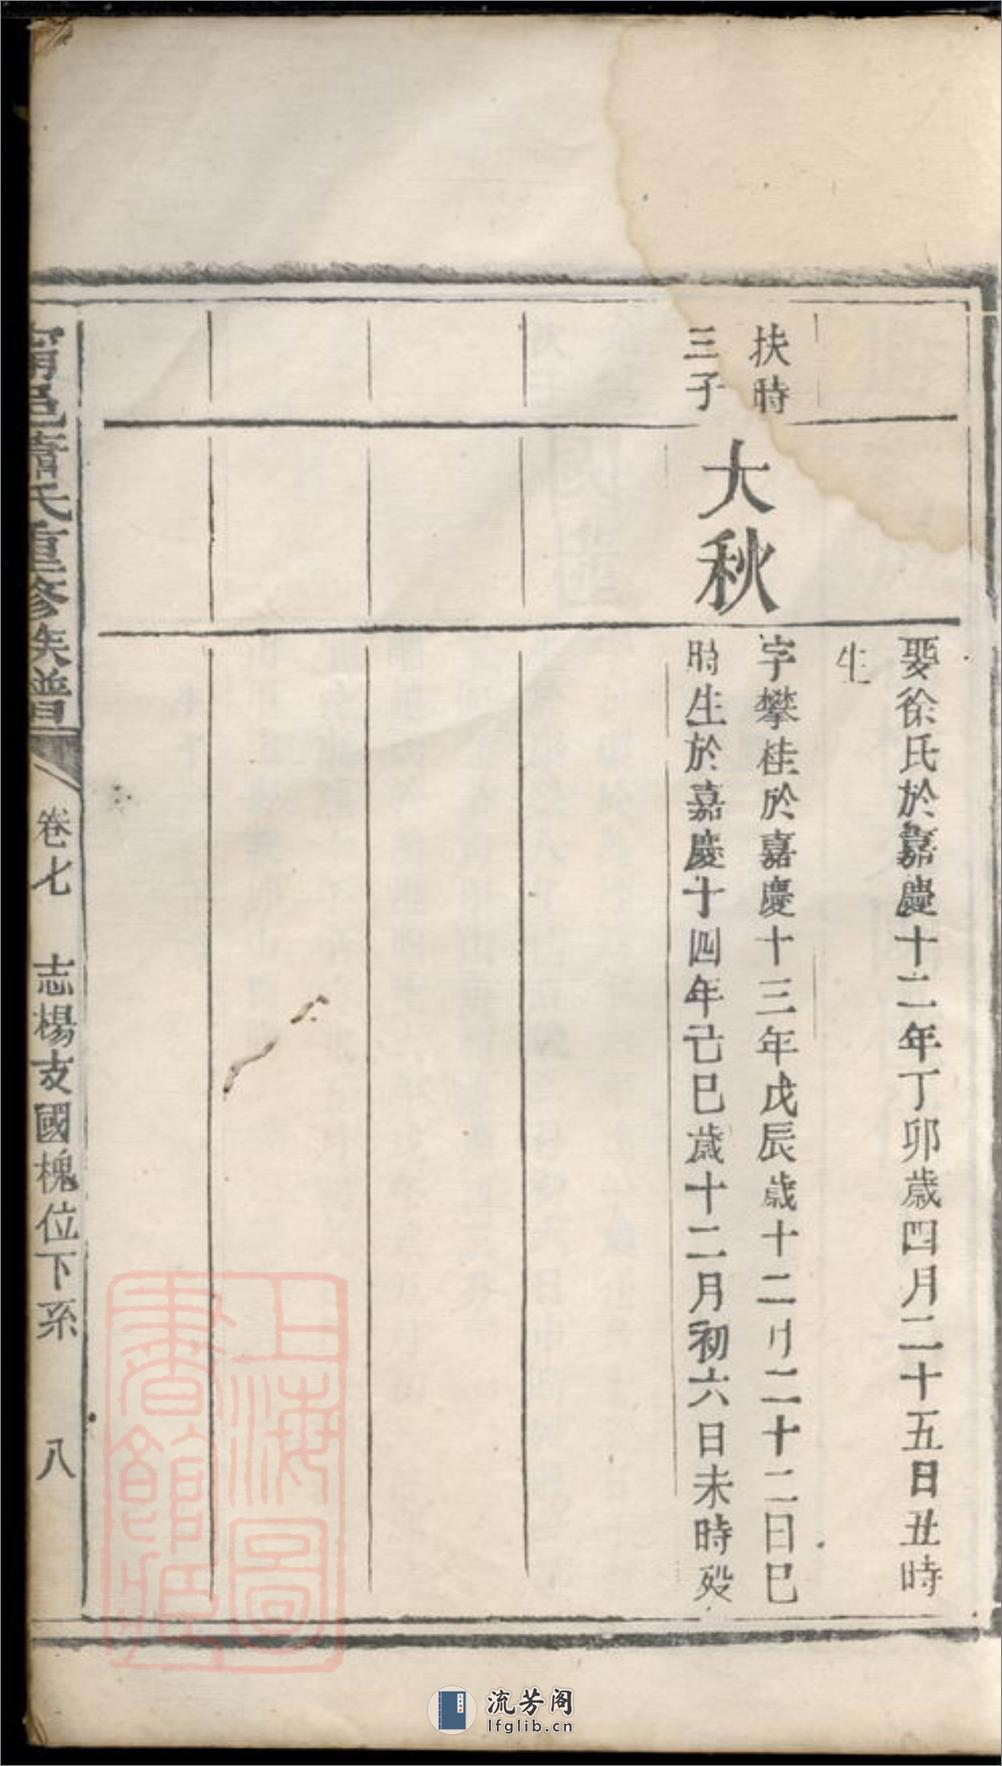 娶徐氏於嘉慶十二年丁卯歲四月二十五日丑時
生
扶時
三子
大秋
字攀桂於嘉慶十三年戊辰歲十二月二十二日巳
時生於嘉慶十四年己巳歲十二月初六日未時殁
甯邑蕭氏重修族譜
卷七
志楊支國槐位下系
八
上海圖
書館藏
流芳阁
lfglib.cn